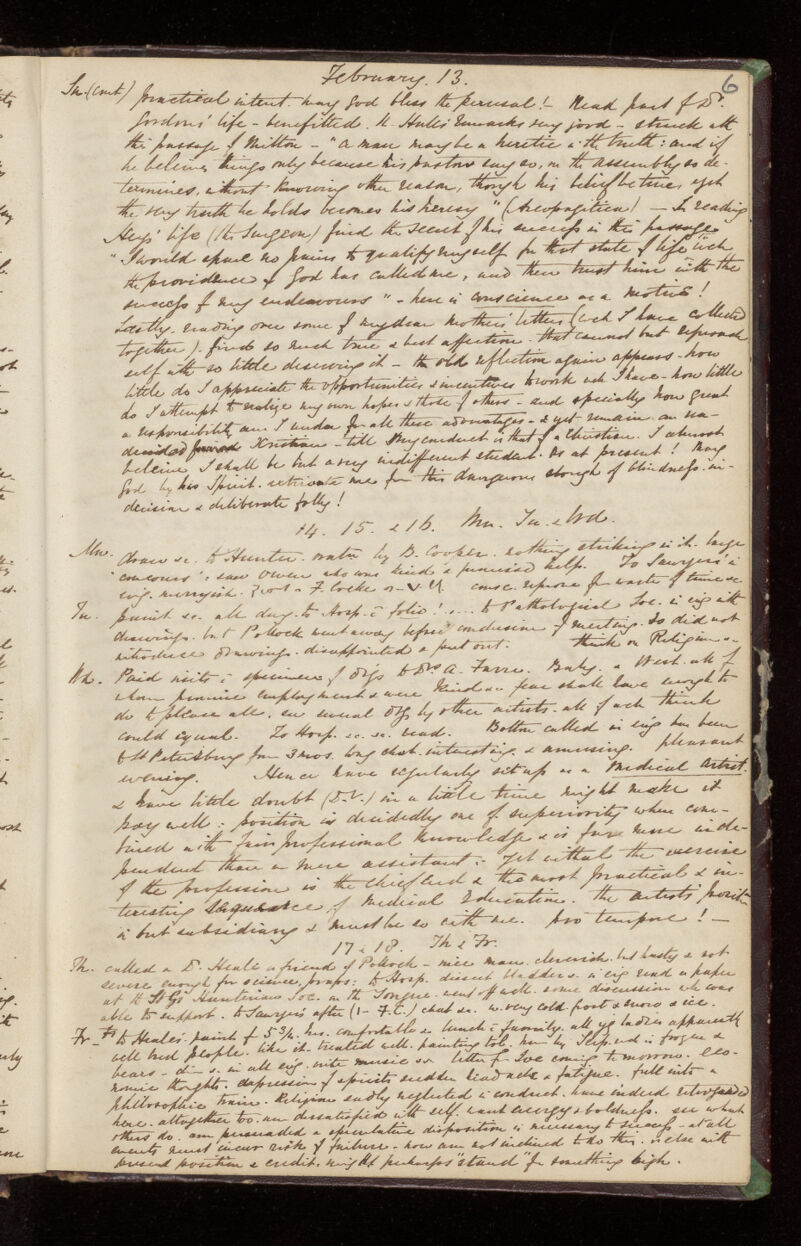 February. 13.
6
Su. (cont) practical intent. may God bless the perusal! - Read part of Dr.
Gordons' life - benefitted. N. Hall's remarks very good - struck with
this passage of Milton - "A man may be a heretic in the truth: and if
he believes things only because his pastor says so, or the assembly so de-
termines, without knowing other reason, though his belief be true, yet
the very truth he holds becomes his heresy" (Areopagitica) - In reading
Hey's life (the Surgeon) find the secret of his success in this passage
"I would spare no pains to qualify myself for that state of life wch
the providence of God has called me, and then trust him with the
success of my endeavours" - here is conscience as a motive!
Lastly. reading over some of my dear mother's letters (wch I have collected
together). find so much true & best affection. that cannot but reproach
self with so little deserving it - the old reflection again appears - how
little do I appreciate the opportunities & incentives to work wch I have - how little
do I attempt to realize my own hopes & those of others - and specially how great
a responsibility am I under for all these advantages - & yet remain an un-
decided Xristian - till my conduct is that of a Christian. I almost
believe I shall be but a very indifferent student. as at present! May
God by his Spirit. extricate me from this dangerous slough of blindness. in-
decision & deliberate folly!
14. 15. & 16. Mn. Tu. & Wd.
Mn. draw &c. to Hunter. oratn by B. Cooper. nothing striking in it. large
'concours': saw Owen who was kind & promised help. To Sawyers' in
evg. merryish. F. Cocke consc. reprove for waste of time &c
Tu. paint &c. all day. to Hosp. c folio! to Pathological Soc. in evg with
drawings. but Pollock went away before conclusion of meeting. so did not
introduce drawings. disappointed & put out. think on Religion
Wd. Paid visits c specimens of drgs to Drs A. Farre. Baly. & West. all of
whom promise employment & were kind fear shall have enough to
do to please all. see several drgs by other artists. all of wch think
could equal. To Hosp. &c. &c. read. Bolton called in evg has been
to St Petersburg for 3 mos. long chat. interesting & amusing. pleasant
evening. Hence have regularly set up as a medical artist.
& have little doubt (D.V.) in a little time might make it
pay well: position is decidedly one of superiority when com-
bined with fair professional knowledge & is far more inde-
pendent than a mere assistant: yet withal the exercise
of the profession is the chief end & the most practical & in-
teresting sequence of medical Education. the artists position
is but subsidiary & must be so with me. pro tempore! -
17 & 18. Th & Fr.
Th. called on Dr. Heale a friend of Pollock - nice man. cleverish. but hasty & not
severe enough for science, praps: to Hosp. dissect bladder &c. in evg read a paper
at St G's Hunterian Soc. on the Tongue. went off well. some discussion wh was
able to support. to Sawyers after (1 - F.C.) chat &c. w. very cold frost & snow & ice.
Fr. to Heale's. paint for 5 3/4 hrs. comfortable & lunch c family. all yg ladies apparently
well bred people. like it. treated well. painting frogs &
bears - &c. in all evg. write music letter fr Soc coming tomorrow. eco-
nomic thoughts. depression of spirits sudden head ache & fatigue. fell into a
philosophic train. Religion sadly neglected in conduct. have indeed retrograded
here. altogether too. am dissatisfied with self. want energy & boldness. see what
others do. am persuaded a speculative disposition is necessary to success - at all
events must incur risk of failure. now am not inclined to do this. or else with
present position & credit. might perhaps "stand" for something high.